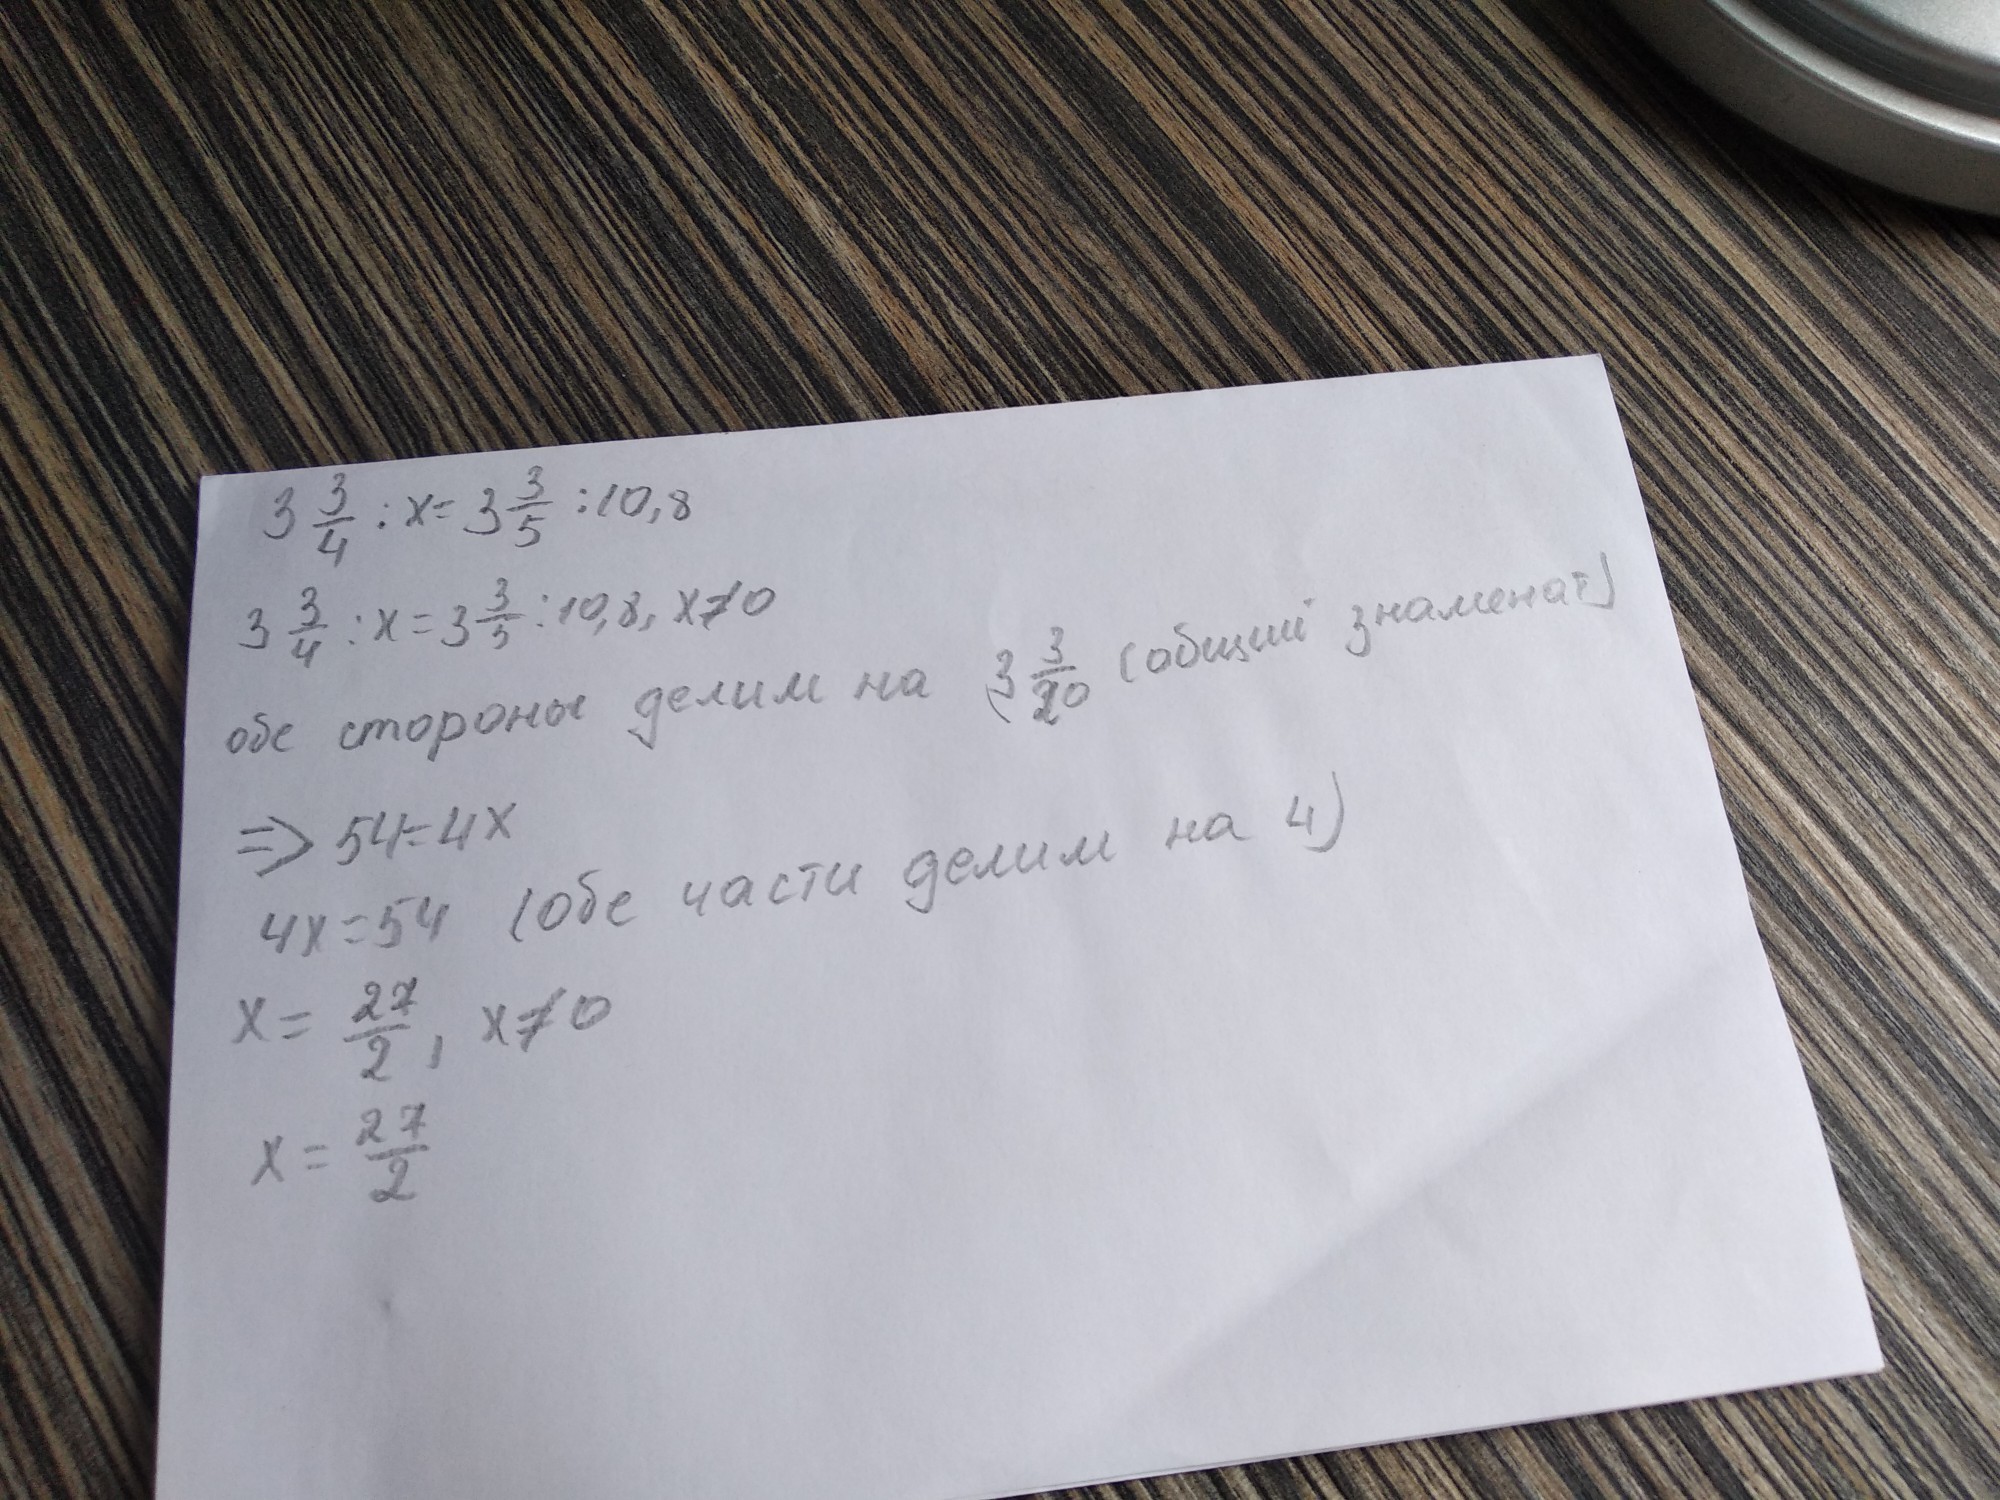 3 3/4 : x = 3 3/5 : 10,8
3 3/4 : x = 3 3/5 : 10,8, x≠0
обе стороны делим на (3 3/20 (общий знаменат)
=> 54=4x
4x=54 (обе части делим на 4)
x= 27/2, x≠0
x= 27/2